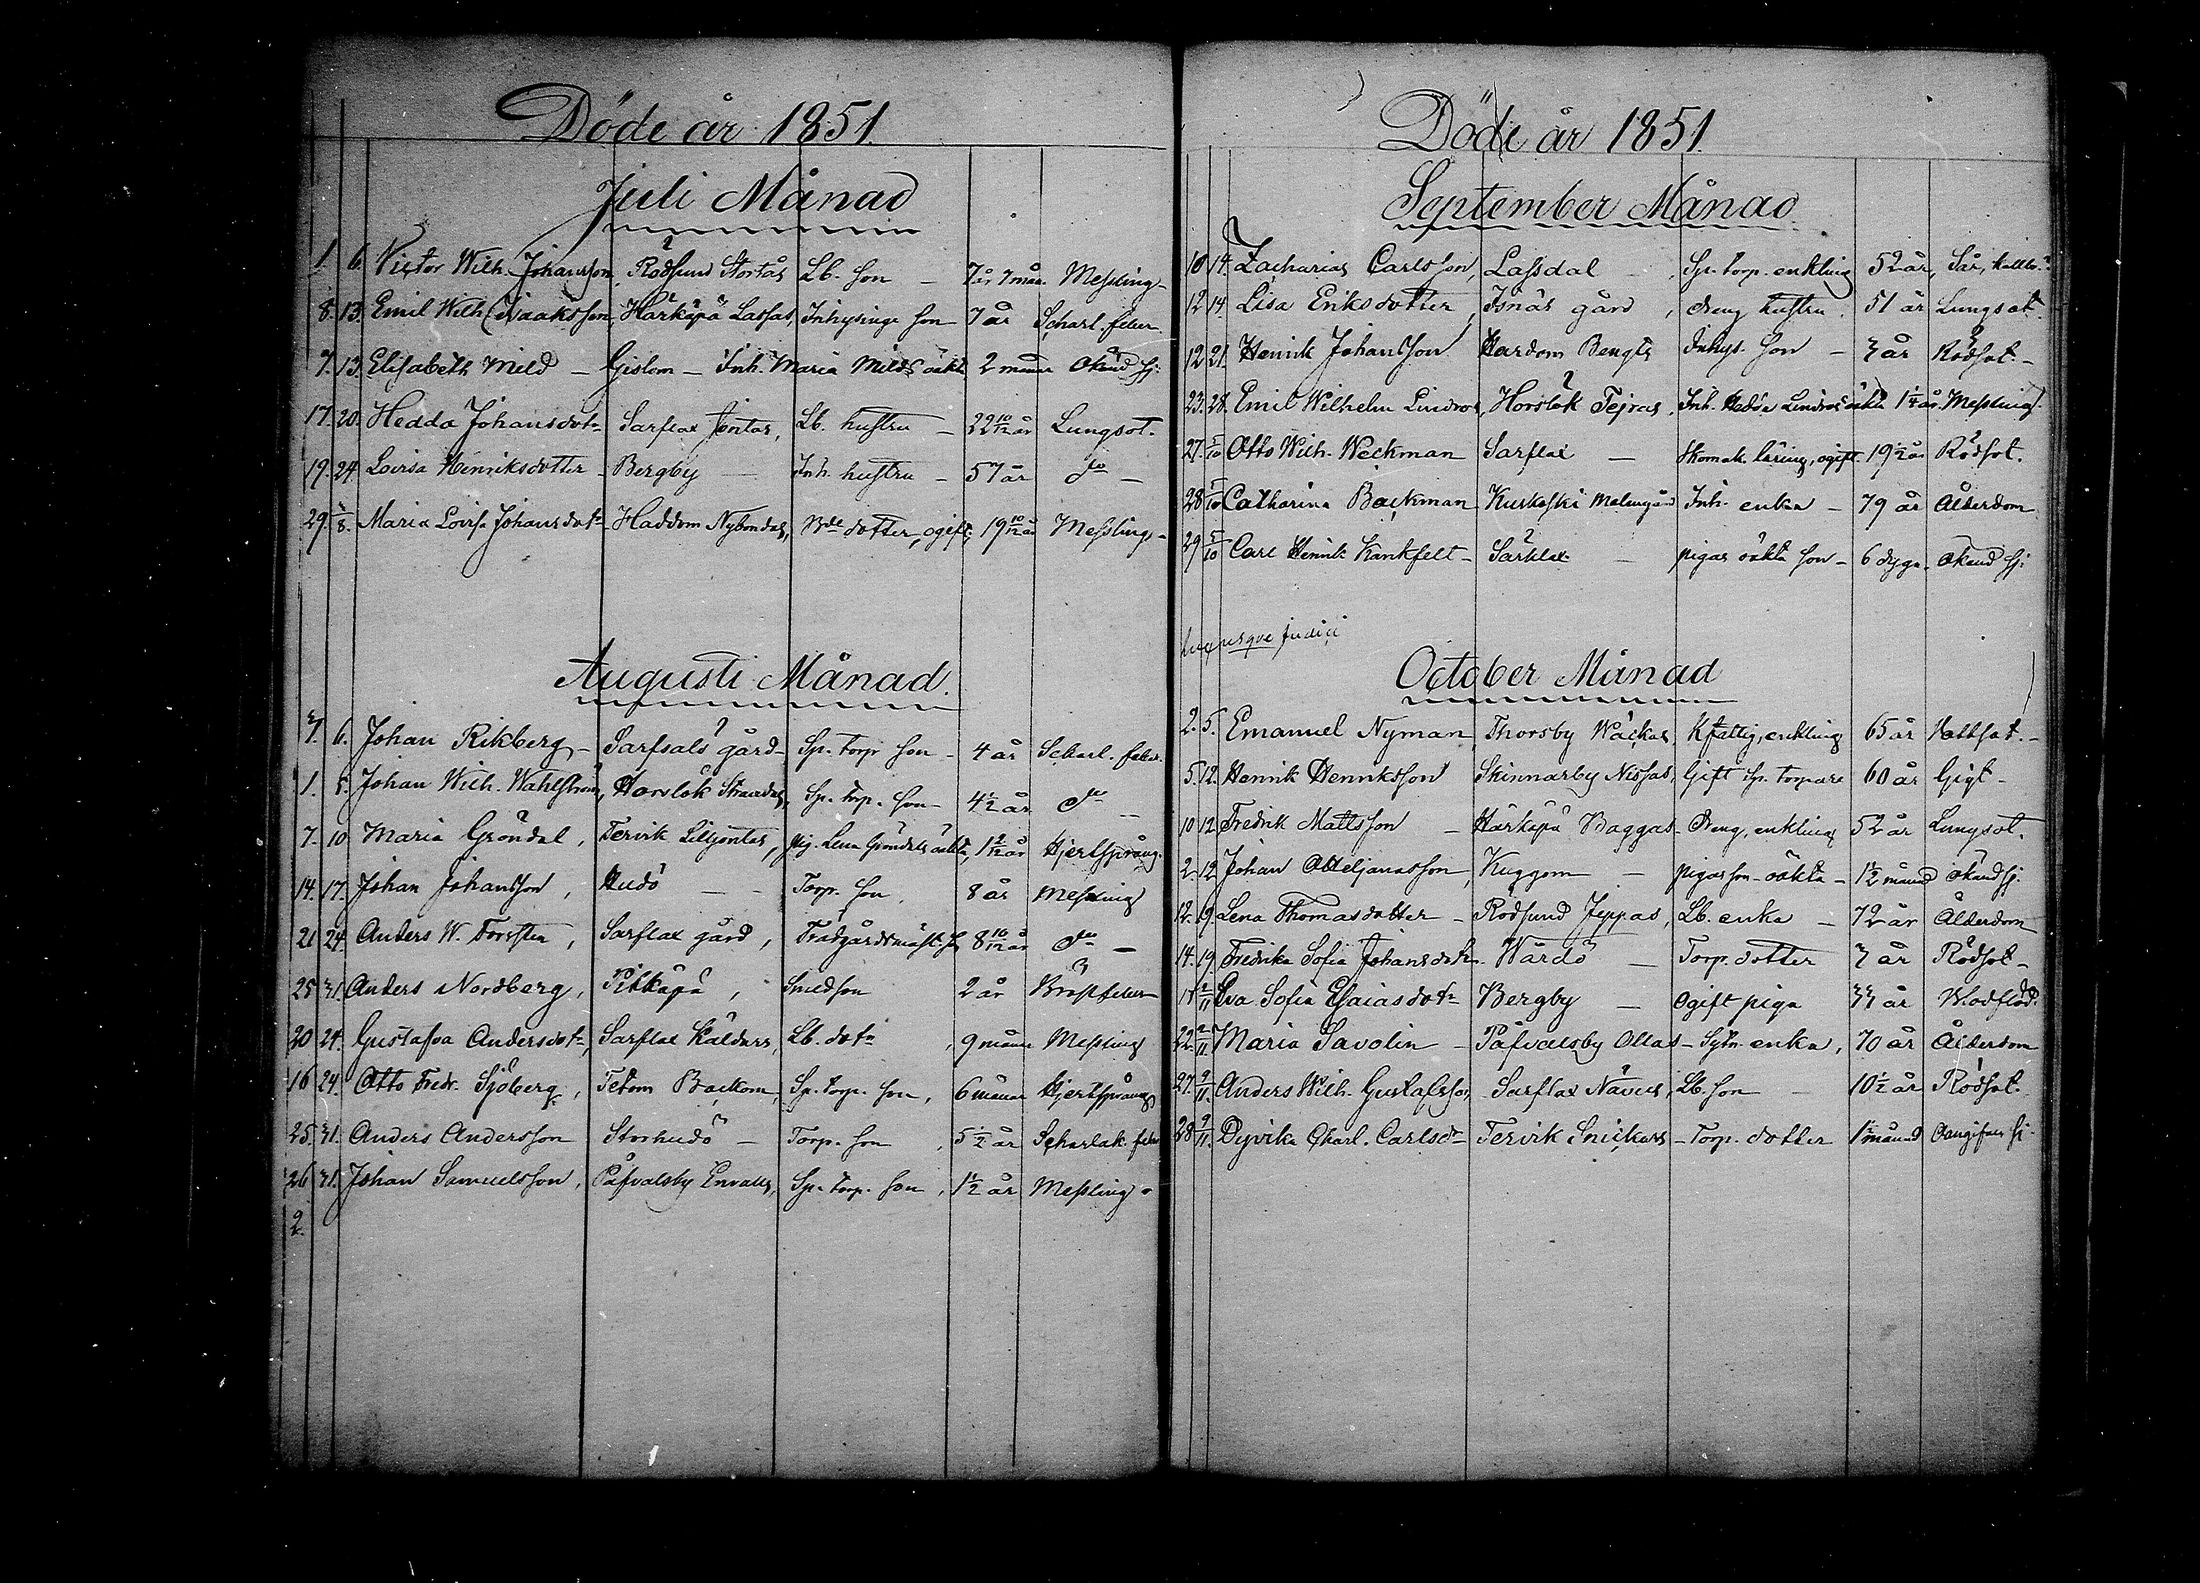 Döde år 1851.
Juli Månad
1. 6. Victor Wilh. Johansson, Rödsund Stortås Lb. son — 7 år 7 mån. Messling-
8. 13. Emil Wilh. Isaaksson, Härkäpä Lassas, Inhysings son 7 år Scharl. feber
7. 13. Elisabeth Mild — Gislom — Inh. Maria Milds oäkta 2 månr Okänd sj:
17. 20. Hedda Johansdotr Sarflax Jontas, Lb. hustru — 22 10/12 år Lungsot.
19. 24. Lovisa Henriksdotter — Bergby — Inh. hustru — 57 år do —
29. 3/8. Maria Lovisa Johansdotr Haddom Nybondas, Bde dotter, ogift, 19 10/12 år Messling-
Augusti Månad.
3. 6. Johan Rikberg — Sarfsals gård — Sp. torp. son — 4 år Scharl. feber.
1. 5. Johan Wilh. Wahlström, Horslök Strandas, Sp. torp. son — 4½ år do —
7. 10 Maria Gröndal, Tervik Liljontas, pig. Lena Gröndals oäkta, 1 2/12 år Hjertsprång.
14. 17. Johan Johansson, Hudö — Torp. son, 8 år Messling
21 24. Anders W. Forsten, Sarflax gård, Trädgårdsmäst. son 8 10/12 år do —
25 31. Anders Nordberg, Pitkäpä, Smedson 2 år Bröstfeber
20 24. Gustafva Andersdotr, Sarflax Källdars, Lb. dotr, 9 månr Messling
16 24. Otto Fredr. Sjöberg, Tetom Backom, Sp. torp. son, 6 månar Hjertsprång
25. 31. Anders Andersson Storhudö — Torp. son, 5½ år Scharlak. feber
26 31. Johan Samuelsson, Påfvalsby Envalls, Sp. torp. son, 1½ år Messling
2.
Döde år 1851.
September Månad.
10 14. Zacharias Carlsson, Lassdal —, Sp. torp. enkling 52 år, Sår, kallbr.
12 14. Lisa Eriksdotter, Isnäs gård, dreng hustru. 51 år Lungsot
12 21. Henrik Johansson Hardom Bengts Inhys. son — 3 år Rödsot. —
23. 28. Emil Wilhelm Lindros, Horslök Tejras, Inh. Hedda Lindros oäkta 1¼ år. Messling.
27. 5/10 Otto Wilh. Weckman Sarflax — Skomak. läring, ogift. 19½ år Rödsot.
28 5/10 Catharina Backman Kuskoski Malmgård Inh. enka — 79 år Ålderdom
29 5/10 Carl Henrik Kankfelt — Särklax — pigas oäkta son — 6 dygn. Okänd sj:
usque
October Månad
2. 5. Emanuel Nyman, Thorsby Wäckas, Kfattig, enkling 65 år Wattsot. —
5. 12. Henrik Henriksson Skinnarby Nissas, Gift Sp. torpare 60 år Gigt —
10 12 Fredrik Mattsson — Härkäpä Baggas — Dreng, enkling 52 år Lungsot.
2. 12 Johan Otteljanasson, Kuggom — pigasson oäkta — 1½ månad okänd sj.
12. 19. Lena Thomasdotter — Rödsund Jeppas, Lb. enka — 72 år Ålderdom
14. 19. Fredrika Sofia Johansdotr Wårdö — Torp. dotter 3 år Rödsot —
2/11 Eva Sofia Esaiasdotr Bergby — Ogift piga 33 år Blodflöd.
22. 2/11. Maria Savolin — Påfvalsby Ollas — Sytn. enka, 70 år Ålderdom
27. 9/11. Anders Wilh. Gustafsson, Sarflax Näveis, Lb. son — 10½ år Rödsot.
28 9/11. Dyvika Charl. Carlsdr Tervik Snickars — Torp. dotter 1½ månad Oangifven sj